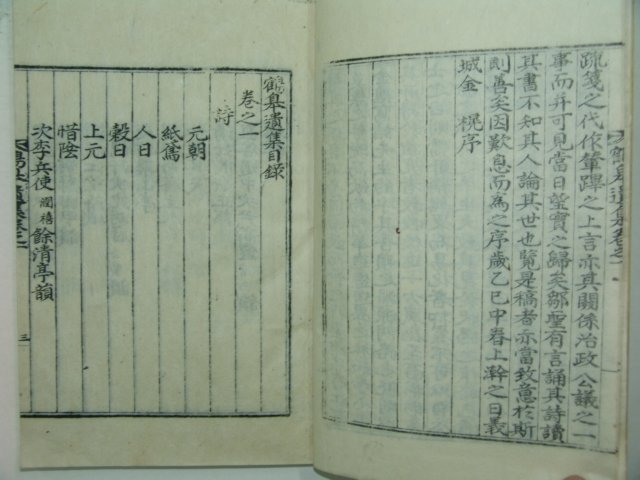 疏箋之代作輦蹕之上言亦其關係治政公議之一
事而并可見當日望實之歸矣鄒聖有言誦其詩讀
其書不知其人論其世也覽是稿者亦當致意於斯
則善矣因歎息而爲之序歲乙巳中春上澣之日義
城金 榥序
鶴皋遺集目錄
卷之一
詩
元朝
紙鳶
人日
穀日
上元
惜陰
次李兵使 潤禧 餘清亭韻
三